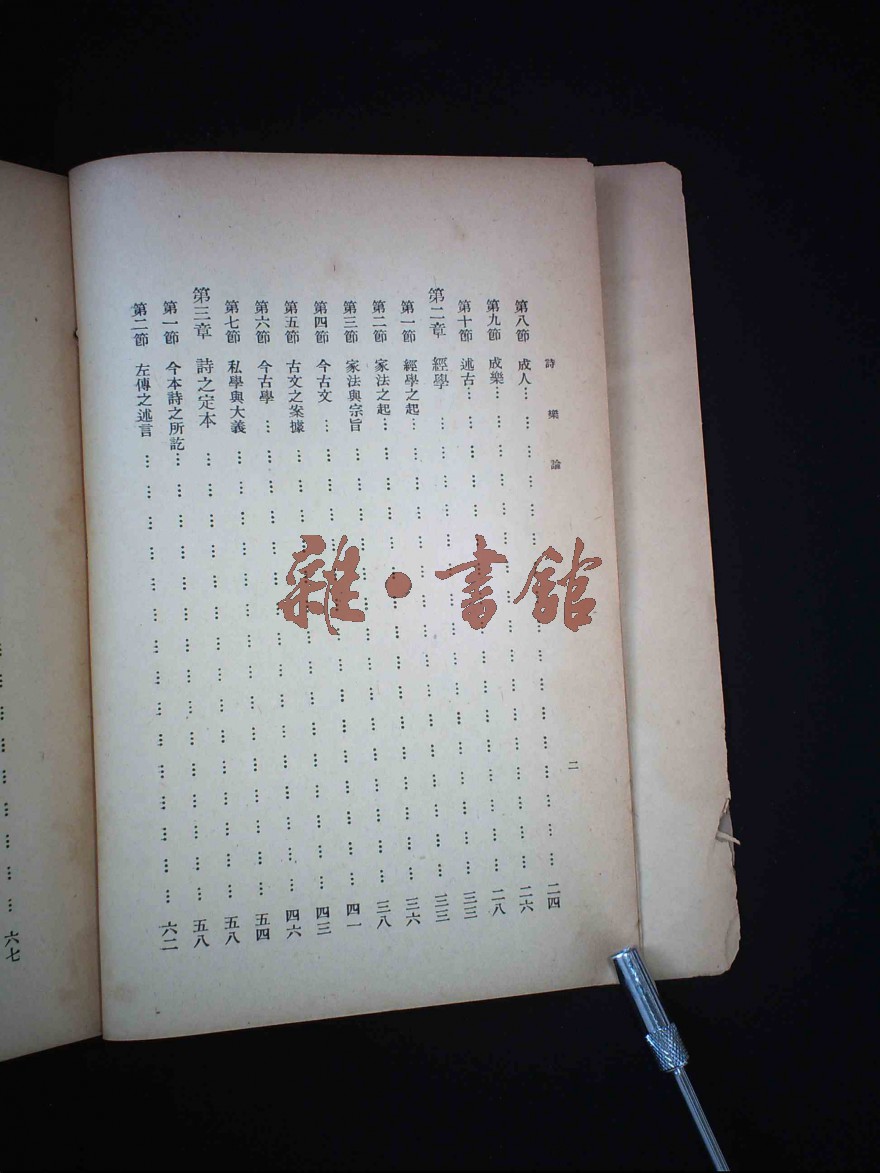 詩樂論 二
第八節 成人 二四
第九節 成樂 二六
第十節 述古 二八
第二章 經學 三三
第一節 經學之起 三三
第二節 家法之起 三六
第三節 家法與宗旨 三八
第四節 今古文 四一
第五節 古文之案據 四三
第六節 今古學 四六
第七節 私學與大義 五四
第三章 詩之定本 五八
第一節 今本詩之所訖 五八
第二節 左傳之述言 六二
六七
雜·書館